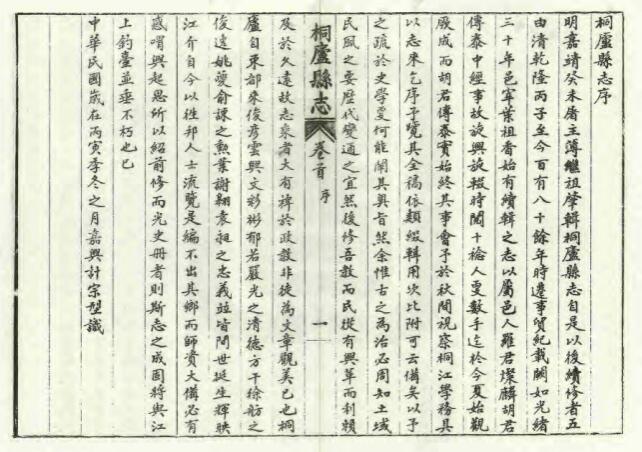 桐廬縣志序
明嘉靖癸未屠主簿繼祖肇輯桐廬縣志自是以後續修者五
由清乾隆丙子至今百有八十餘年時遷事貿紀載闕如光緒
三十年邑宰葉祖香始有續輯之志以屬邑人羅君燦麟胡君
傳泰中經事故旋興旋輟時閱十稔人更數手迄於今夏始觀
厥成而胡君傳泰實始終其事會予於秋間視察桐江學務具
以志來乞序予覽其全稿依類綴輯用次比附可云備矣以予
之疏於史學曼何能闡其奧旨然余惟古之為治必周知土域
民風之要歷代變通之宜然後修吾教而民從有興革而利賴
桐廬縣志
卷首
序
一
及於久遠故志乘者大有裨於政教非徒為文章觀美已也桐
廬自東都來俊彥雲興文彩彬郁若嚴光之清德方干徐舫之
俊逸姚夔俞諫之勲業謝翱袁昶之忠義並皆間世挺生輝映
江介自今以往邦人士流覽是編不出其鄉而師資大備必有
感喟興起思所以紹前修而光史冊者則斯志之成固將與江
上釣臺並垂不朽也已
中華民國歲在丙寅季冬之月嘉興計宗型識